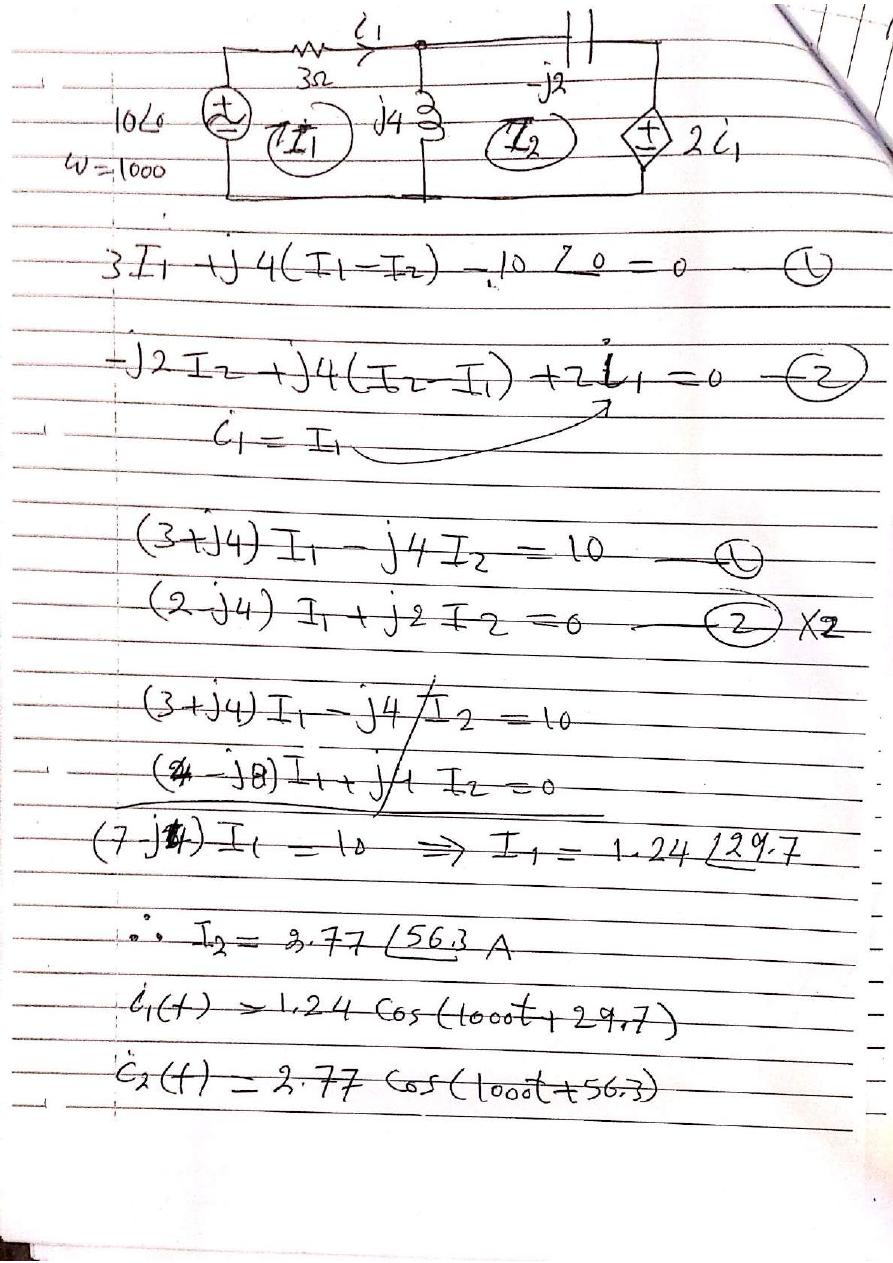 i1
3Ω
-j2
10∠0
+
I1
j4
I2
+
2i1
ω=1000
3I1 + j4(I1-I2) - 10∠0 = 0 — ①
-j2I2 + j4(I2-I1) + 2i1 = 0 — ②
i1 = I1
(3+j4) I1 - j4 I2 = 10 — ①
(2-j4) I1 + j2 I2 = 0 — ② X2
(3+j4) I1 - j4 I2 = 10
(4-j8) I1 + j4 I2 = 0
(7-j4) I1 = 10 ⇒ I1 = 1.24 ∠29.7
∴ I2 = 2.77 ∠56.3 A
i1(t) = 1.24 Cos(1000t + 29.7)
i2(t) = 2.77 Cos(1000t + 56.3)